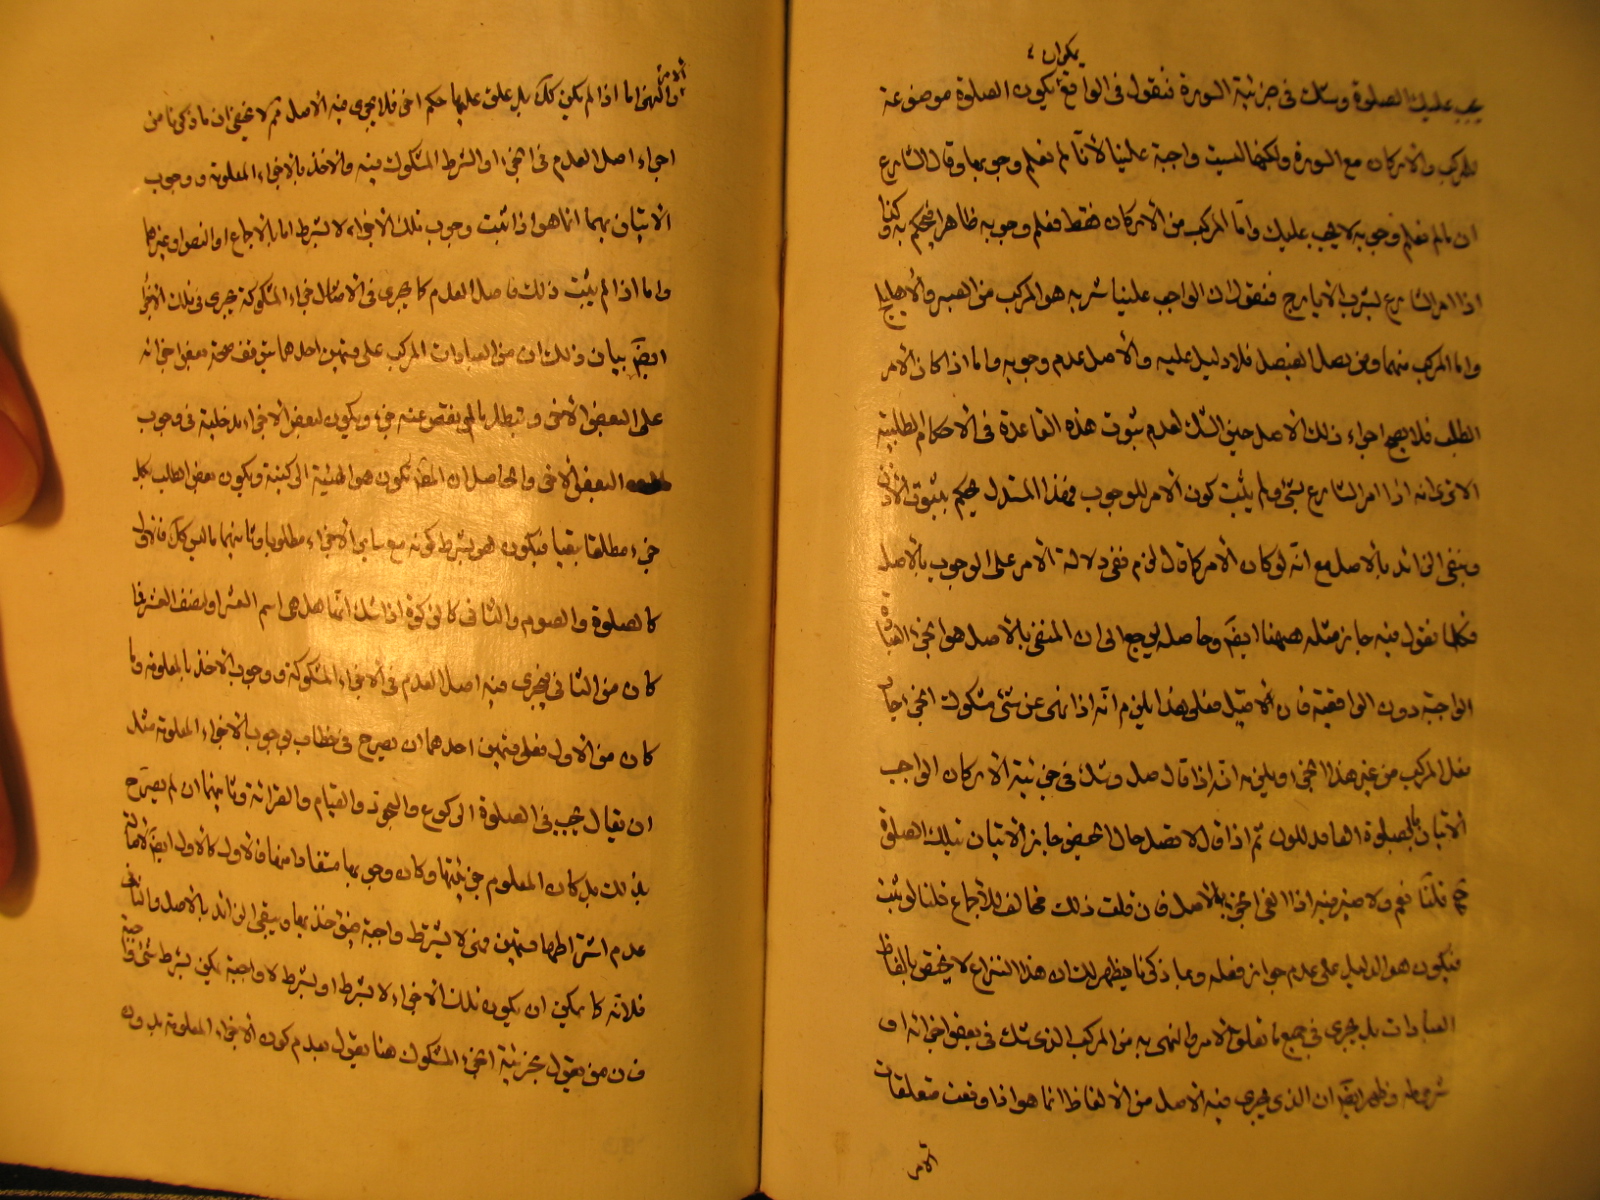 يجب عليك الصلوة وشك فى جزئية السورة فنقول فى الواقع يكون الصلوة موضوعة
للمركب والاركان مع السورة ولكنها ليست واجبة علينا لأنا لم نعلم وجوبها وقال الشارع
ان مالم نعلم وجوبه لا يجب عليك وامّا المركب من الاركان فقط فعلم وجوبه ظاهرا فيحكم به وكذا
اذا امر الشارع بشرب الايارج فنقول ان الواجب علينا شربه هو المركب من الصبر والأهليلج
واما المركب منهما ومن بصل العنصل فلا دليل عليه والأصل عدم وجوبه واما اذا كان الأمر
الطلب فلا يصح اجراء ذلك الأصل حين الشك لعدم ثبوت هذه القاعدة فى الأحكام الطلبية
الا ترى انه اذا امر الشارع لشئ ولم يثبت كون الأمر للوجوب فهذا المستدل يحكم بثبوت الأذن
وينفى الزائد بالأصل مع انّه لو كان الأمر كما قال لزم نفى دلالة الأمر على الوجوب بالأصل
فكلما نقول فيه جائز مثله ههنا ايضا وحاصله يرجع الى ان المنفى بالأصل هو الجزء
الواجبة دون الواقعية فان قيل فعلى هذا يلزم انّه اذا نهى عن شئ مشكوك الجزء جاز
فعل المركب من غير هذا الجزء ويلزم انه اذا قال صل وشك فى جزئية الأركان الواجب
الاتيان بالصلوة ثم اذا قال لا تصل حال الحيض جاز الاتيان بتلك الصلوة
قلنا نعم ولا ضير فيه اذا انفى الجزء بالأصل فان قلت ذلك مخالف للأجماع قلنا لو ثبت
فيكون هو الدليل على عدم جواز فعله وبما ذكرنا يظهر لك ان هذا النزاع لا يختص بالفاظ
العبادات بل يجرى فى جميع ما تعلق الأمر والنهى به من المركب الذى شك فى بعض اجزائه او
شروطه وظهر ايضا ان الذى يجرى فيه الأصل من الألفاظ انما هو اذا وقعت متعلقات
الأمر
الأمر والنهى واما اذا لم يكن كك بل علق عليها حكم اخر فلا يجرى فيه الأصل ثم لا يخفى ان ما ذكرنا من
اجراء اصل العدم فى الجزء او الشرط المشكوك فيه والأخذ بالأجزاء المعلومة ووجوب
الاتيان بهما انما هو اذا ثبت وجوب تلك الأجزاء لا بشرط اما بالاجماع او النص او غيرهما
واما اذا لم يثبت ذلك فاصل العدم كما يجرى فى الأجزاء المشكوكة يجرى فى تلك الأجزاء
ايضا بيان ذلك ان من العبادات المركب على قسمين احدهما يتوقف صحة بعض اجزائه
على البعض الأخر وتبطل بالمرة بنقص عنه جزء ويكون لبعض الأجزاء مدخلية فى وجوب
البعض الأخر والحاصل ان المطلوب يكون هو الهيئة التركيبية ويكون بعض الطلب بكل
جزء مطلقا بقيا فيكون هو بشرط كونه مع ساير الأجزاء مطلوبا وثانيهما ما ليس كك فالأول
كالصلوة والصوم والثانى كالزكوة اذا شك انّها هل هى اسم العشر او نصف العشر فما
كان من الثانى فيجرى فيه اصل العدم فى الأجزاء المشكوكة ووجوب الأخذ بالمعلومة وما
كان من الأول فعلى قسمين احدهما ان يصرح فى خطاب بوجوب الأجزاء المعلومة مثل
ان يقال يجب فى الصلوة الركوع والسجود والقيام والقرائة وثانيهما ان لم يصرّح
بذلك بل كان المعلوم جزئيتها وكان وجوبها مستفادا منها فالأول كالأول ايضا لأصالة
عدم اشتراطها فتعين فهى لا بشرط واجبة فنأخذ بها وينفى الزائد بالأصل والثانى
فلأنّه كما يمكن ان يكون تلك الأجزاء لا بشرط او بشرط لا واجبة يمكن بشرط شئ واجبة
فان من يقول بجزئية الجزء المشكوك هنا يقول بعدم كون الأجزاء المعلومة بدون